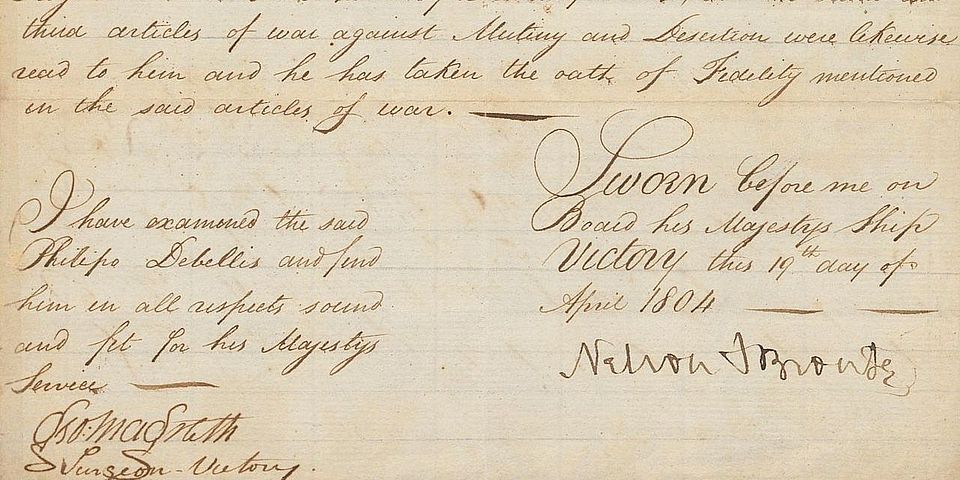 third articles of war against Mutiny and Desertion were likewise
read to him and he has taken the oath of Fidelity mentioned
in the said articles of war.
I have examened the said
Philipo Debellis and find
him in all respects sound
and fit for his Majestys
Service
Geo: MaGrath
Surgeon-Victory.
Sworn before me on
Board his Majestys Ship
Victory this 19th day of
April 1804
Nelson & Bronte